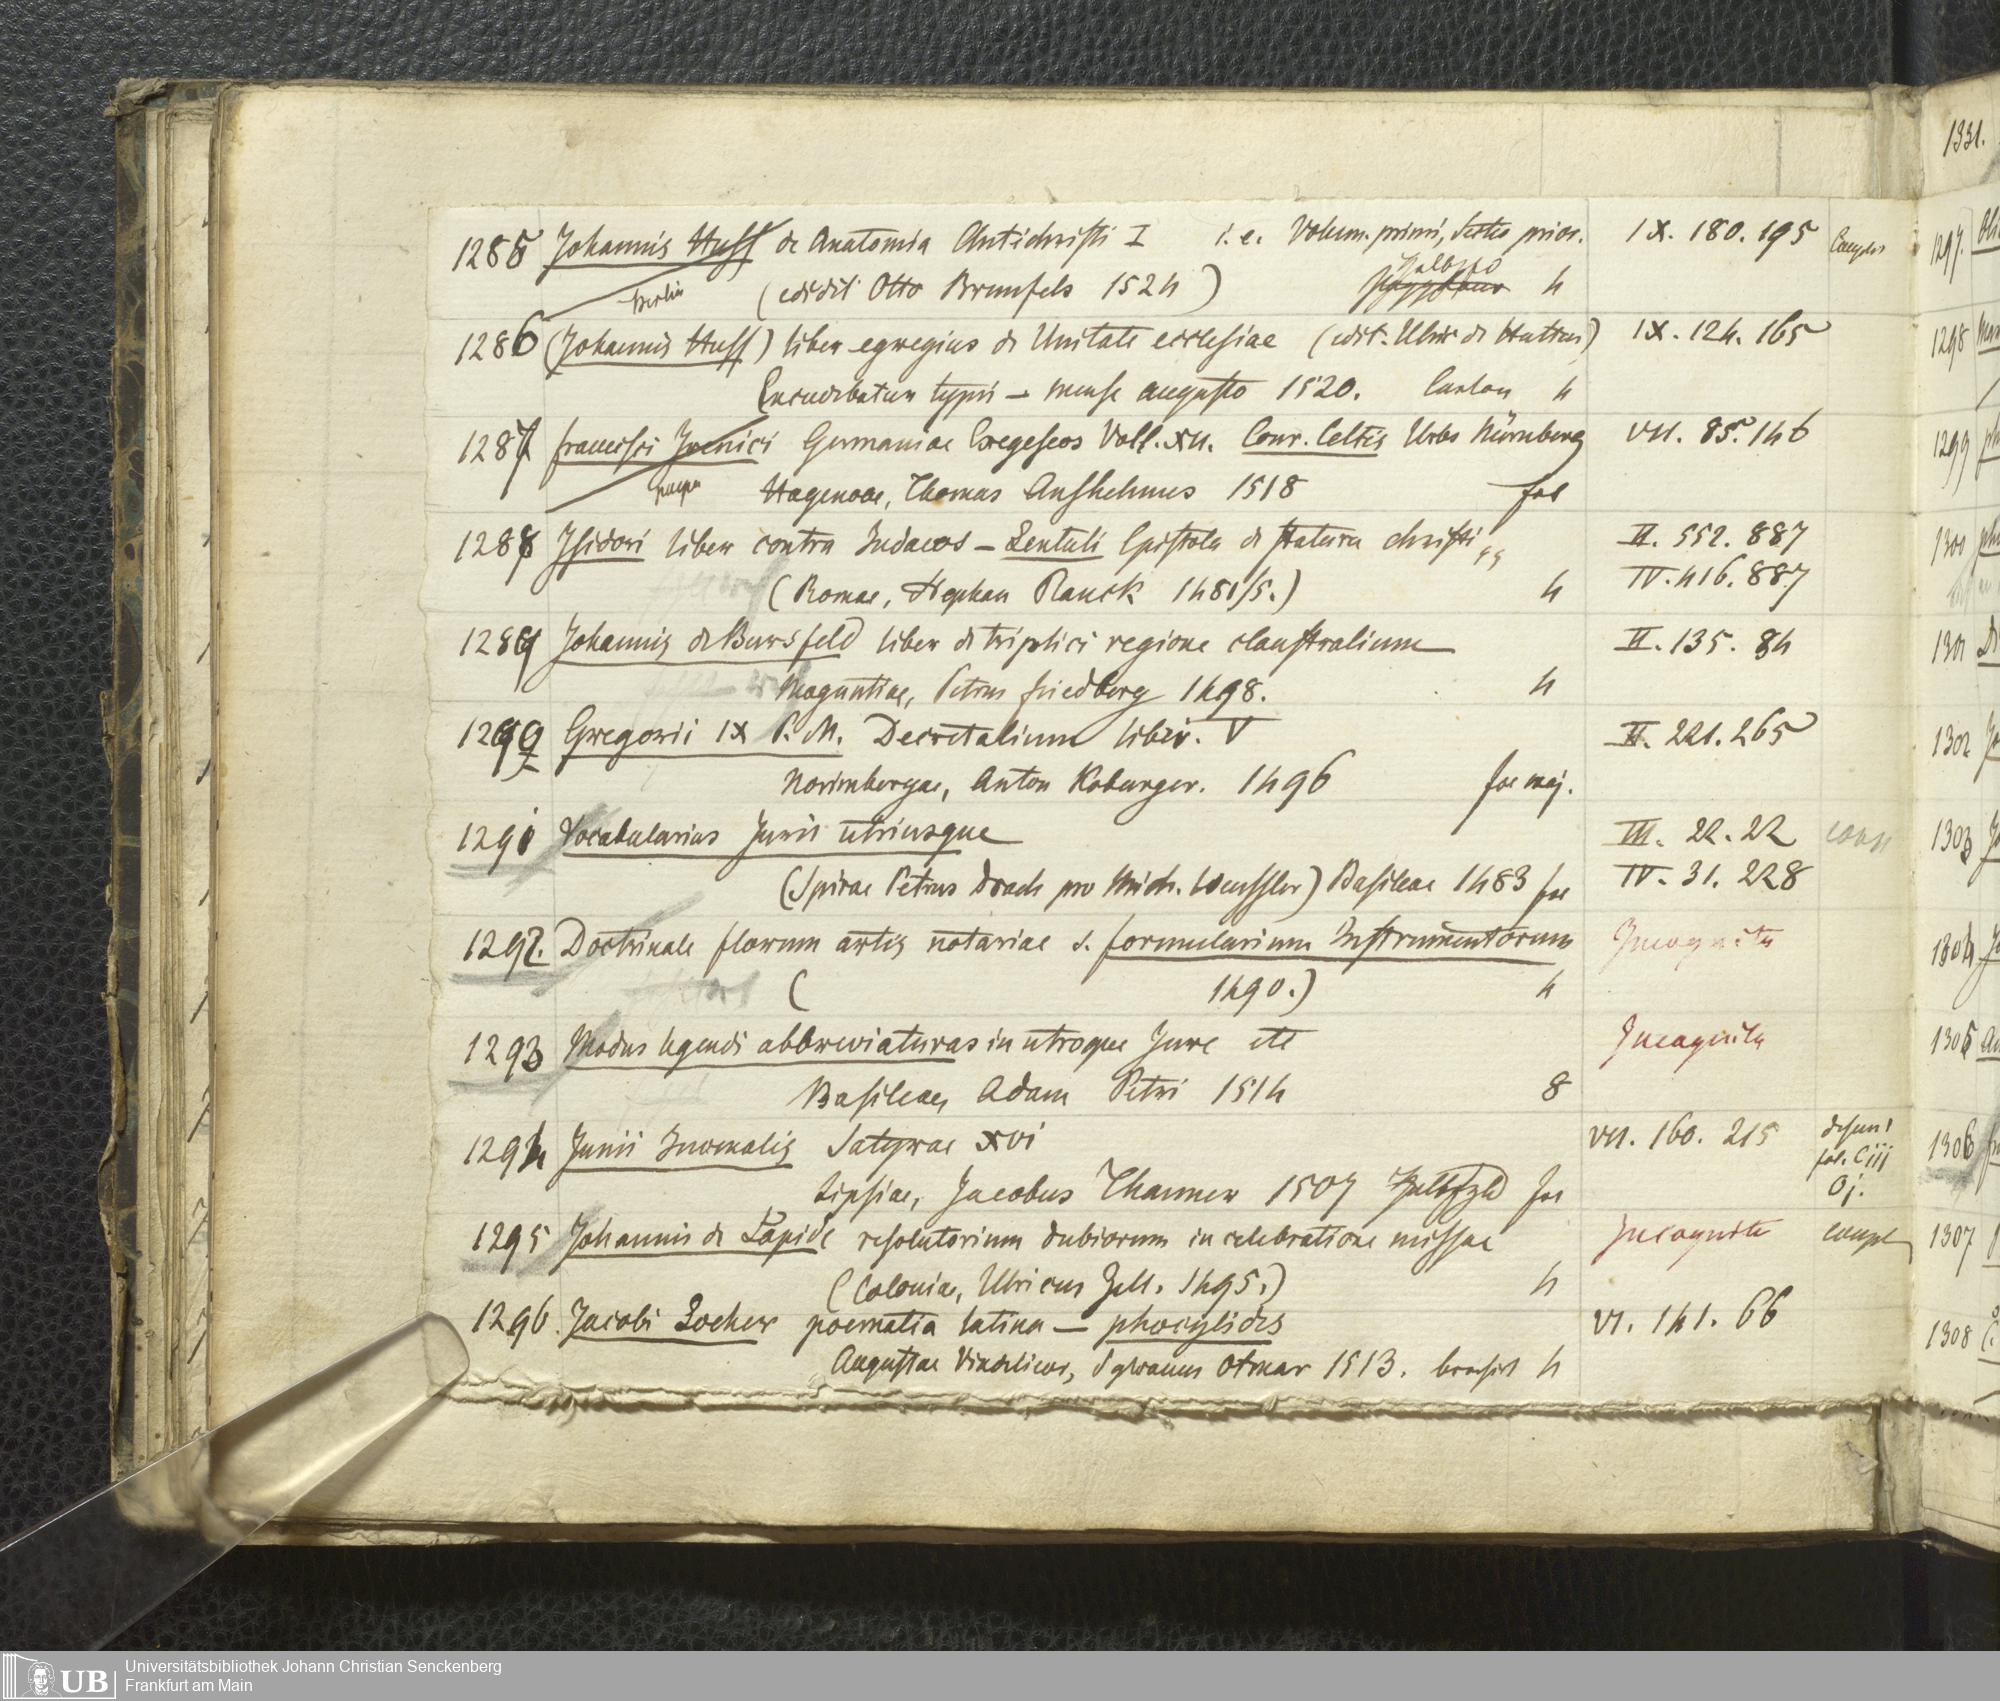 1285 Johannis Huss de Anatomia Antichristi I i.e. Volum. primi, Sectio prior. IX. 180. 195 Complet
Berlin (edidit Otto Brunfels 1524) 4
1286 (Johannis Huss) liber egregius de Unitate ecclesiae (edit. Ulric de Hutten) IX. 124. 165
Excudebatur typis — mense augusto 1520. Carton 4
1287 francisci Irenici Germaniae Exegeseos Voll. XII. Conr. Celtis Urbs Nürnberg VII. 85. 146
Hagenoae, Thomas Anshelmus 1518 fol
1288 Isidori liber contra Judaeos — Lentuli Epistola de statura christi II. 552. 887
(Romae, Stephan Planck 1481/5.) 4 IV. 416. 887
1289 Johannis de Bursfeld liber de triplici regione claustralium II. 135. 84
Moguntiae, Petrus friedberg 1498. 4
1290 Gregorii IX P. M. Decretalium libri. V II. 221. 265
Norimbergae, Anton Koburger. 1496 fol maj.
1291 Vocabularius Juris utriusque III. 22. 22
(Spirae Petrus Drach pro Mich. Wenssler) Basileae 1483 fol IV. 31. 228
1292. Doctrinale florum artis notariae s. formularium Instrumentorum Incognita
( 1490.) 4
1293 Modus legendi abbreviaturas in utroque Jure etc Incognita
Basileae, Adam Petri 1514 8
1294 Junii Juvenalis Satyrae XVI VII. 160. 215 desunt
fol. Ciij
Lipsiae, Jacobus Thanner 1507 fol Oj.
1295 Johannis de Lapide resolutorium dubiorum in celebratione missae Incognita compl
(Coloniae, Ulricus Zell. 1495.) 4
1296. Jacobi Locher poematia latina — phocylides VI. 141. 66
Augustae Vindelicor, Sylvanus Otmar 1513. brosch 4
1331.
1297.
1298
1299
1300
1301
1302
1303
1304
1305
1306
1307
1308
UB Universitätsbibliothek Johann Christian Senckenberg
Frankfurt am Main